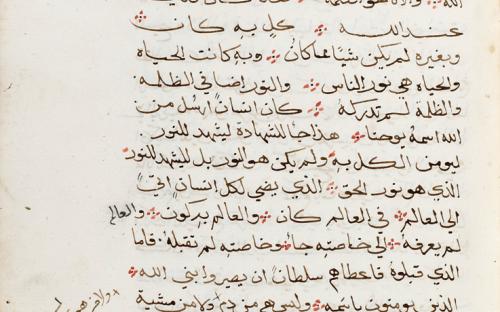 الله
عند الله كل به كان
وبغيره لم يكن شيا مما كان وبه كانت الحياه
والحياه هي نور الناس والنور اضا في الظلمه
والظلمة لم تدركه كان انسان ارسل من
الله اسمه يوحنا هذا جا للشهادة ليشهد للنور
ليومن الكل به ولم يكن هو النور بل ليشهد للنور
الذي هو نور الحق الذي يضي لكل انسان اتي
الي العالم في العالم كان والعالم به كون والعالم
لم يعرفه الي خاصته جا وخاصته لم تقبله فاما
الذي قبلوه فاعطاهم سلطان ان يصيروا بني الله
الذين يومنون باسمه وليس هم من دم ولا من مشية